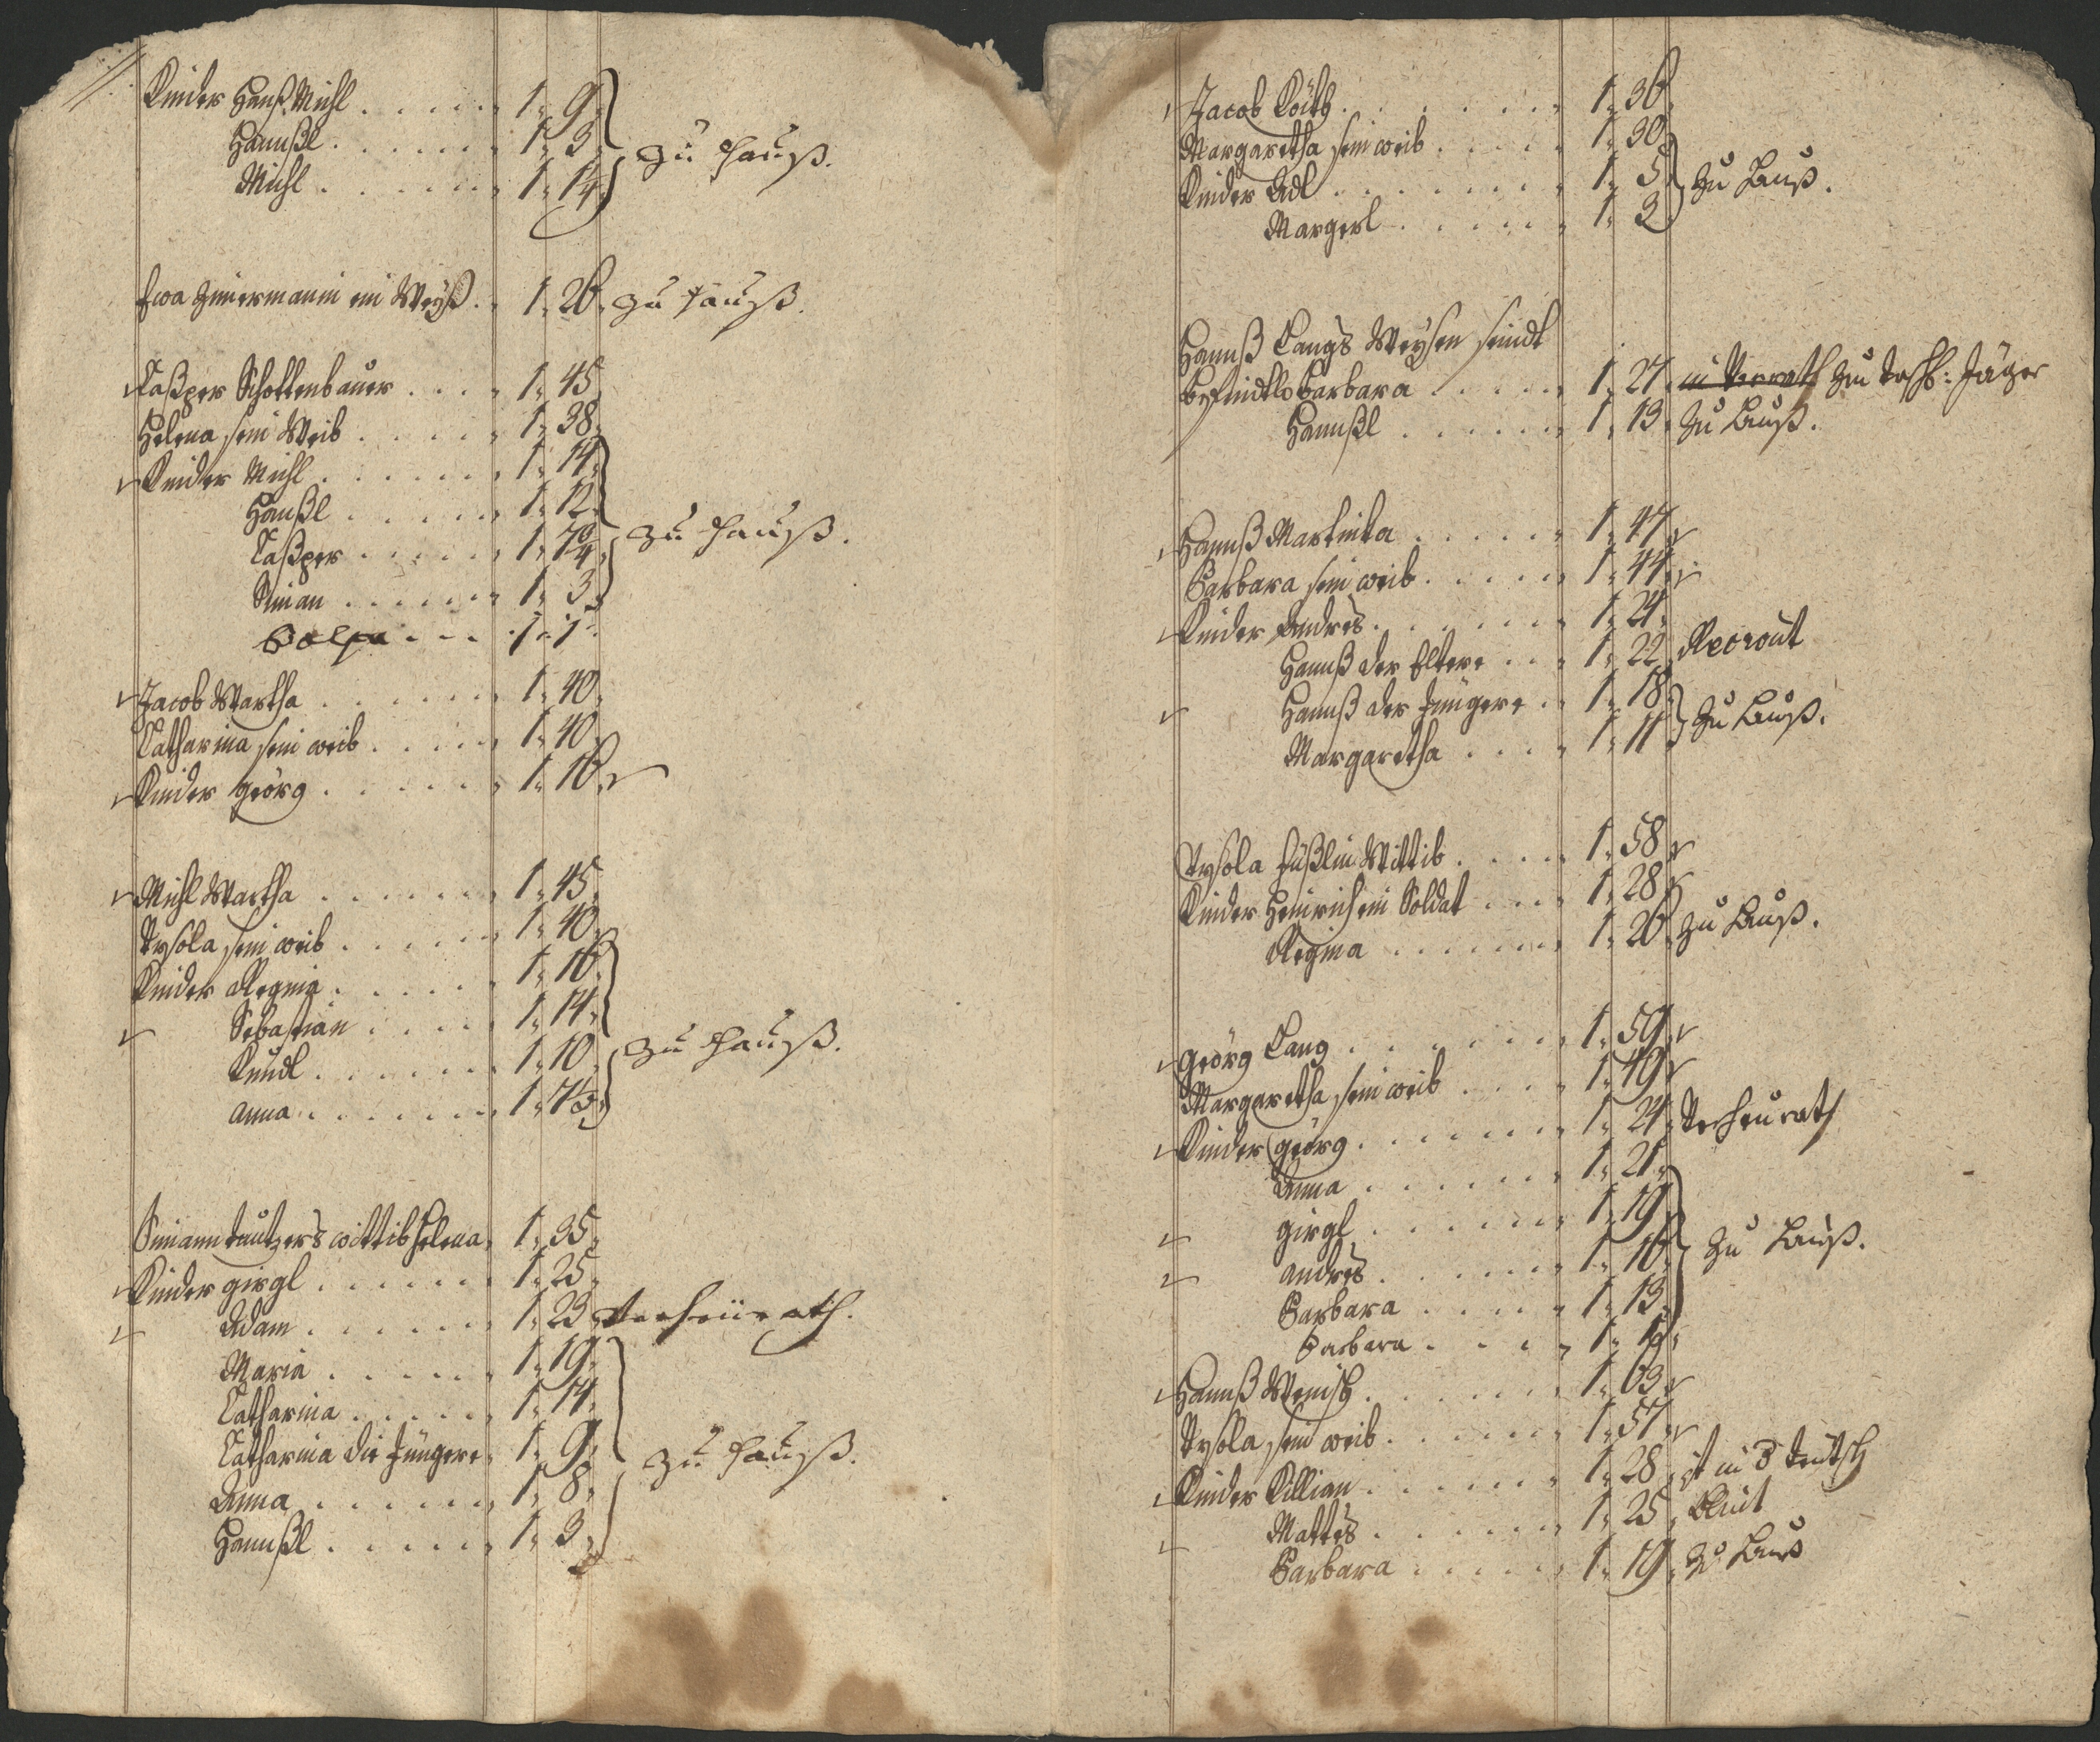 Kinder Hanß Michl . . . . . 1. 9.
Hannßl . . . . . . 1. 3. zu Hauß.
Michl . . . . . . 1. 1/4
Eva Zimermanin ein Weyß . 1. 26. zu Hauß.
Caßper Schottenbauer . . . 1. 45.
Helena sein Weib . . . . . 1. 38.
Kinder Michl . . . . . . 1. 14.
Hanßl . . . . . 1. 12.
Caßper . . . . . 1. zu Hauß.
Siman . . . . . . 1. 3.
1. 1.
Jacob Wartha . . . . . . 1. 40.
Catharina sein weib . . . . 1. 40.
Kinder Georg . . . . . . 1. 16.
Michl Wartha . . . . . . 1. 45.
Rosola sein weib . . . . . 1. 40.
Kinder Regina . . . . . 1. 16.
Sebastian . . . . 1. 14.
Kundl . . . . . . 1. 10. zu Hauß.
Anna . . . . . . 1.
Simann wittib Helena. 1. 35.
Kinder Girgl . . . . . . 1. 25.
Adam . . . . . . 1. 23. Verheürath.
Maria . . . . . 1. 19.
Catharina . . . . . 1. 14.
Catharina die Jüngere. 1. 9. zu Hauß.
Anna . . . . . . 1. 8.
Hannßl . . . . . 1. 3.
Jacob . . . . . . . 1. 36.
Margaretha sein weib . . . . 1. 30.
Kinder Adl . . . . . . . 1. 5. Zu Hauß.
Margerl . . . . . 1. 2.
Hannß Langs Weysen seindt
Barbara . . . . . 1. 27. Jäger
Hannßl . . . . . . 1. 13. Zu Hauß.
Hannß Martinka . . . . . 1. 47.
Barbara sein weib . . . . . 1. 44.
Kinder Andres . . . . . . 1. 24.
Hannß der Eltere . . . 1. 22. Recrout
Hannß der Jüngere . . 1. 18. Zu Hauß.
Margaretha . . . . 1. 11.
Rosola Wittib . . . . 1. 58.
Kinder Heinrich ein Soldat . . . 1. 28.
Regina . . . . . . 1. 26. Zu Hauß.
Georg Lang . . . . . . . 1. 59.
Margaretha sein weib . . . . 1. 49.
Kinder Georg . . . . . . . 1. 24. Verheurath
Anna . . . . . . 1. 21.
Girgl . . . . . . 1. 19.
Andres . . . . . . 1. 16. Zu Hauß.
Barbara . . . . . 1. 13.
Barbara . . . . 1.
Hannß Wenisch . . . . . . 1. 63.
Rosola sein weib . . . . . . 1. 57.
Kinder Killian . . . . . . 1. 28. ist in
Mattes . . . . . . 1. 25.
Barbara . . . . . 1. 19. Zu Hauß